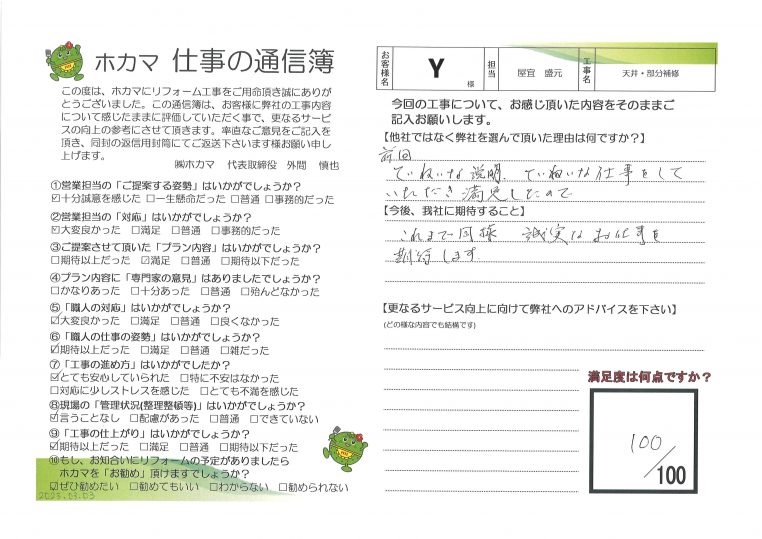 ホカマ 仕事の通信簿
この度は、ホカマにリフォーム工事をご用命頂き誠にありが
とうございました。この通信簿は、お客様に弊社の工事内容
について感じたままに評価していただく事で、更なるサービ
スの向上の参考にさせて頂きます。率直なご意見をご記入を
頂き、同封の返信用封筒にてご返送下さいます様お願い申し
上げます。
㈱ホカマ 代表取締役 外間 慎也
①営業担当の「ご提案する姿勢」はいかがでしょうか?
☑十分誠意を感じた □一生懸命だった □普通 □事務的だった
②営業担当の「対応」はいかがでしょうか?
☑大変良かった □満足 □普通 □事務的だった
③ご提案させて頂いた「プラン内容」はいかがでしょうか?
□期待以上だった ☑満足 □普通 □期待以下だった
④プラン内容に「専門家の意見」はありましたでしょうか?
□かなりあった □十分あった □普通 □殆んどなかった
⑤「職人の対応」はいかがでしょうか?
☑大変良かった □満足 □普通 □良くなかった
⑥「職人の仕事の姿勢」はいかがでしょうか?
☑期待以上だった □満足 □普通 □雑だった
⑦「工事の進め方」はいかがでしたか?
☑とても安心していられた □特に不安はなかった
□対応に少しストレスを感じた □とても不満を感じた
⑧現場の「管理状況(整理整頓等)」はいかがでしょうか?
☑言うことなし □配慮があった □普通 □できていない
⑨「工事の仕上がり」はいかがでしょうか?
☑期待以上だった □満足 □普通 □期待以下だった
⑩もし、お知合いにリフォームの予定がありましたら
ホカマを「お勧め」頂けますでしょうか?
☑ぜひ勧めたい □勧めてもいい □わからない □勧められない
2023.03.03
お客様名
Y 様
担当
屋宜 盛元
工事名
天井・部分補修
今回の工事について、お感じ頂いた内容をそのままご
記入お願いします。
【他社ではなく弊社を選んで頂いた理由は何ですか?】
前回
ていねいな説明、ていねいな仕事をして
いただき満足したので
【今後、我社に期待すること】
これまで同様 誠実なお仕事を
期待します
【更なるサービス向上に向けて弊社へのアドバイスを下さい】
(どの様な内容でも結構です)
満足度は何点ですか?
100
/100